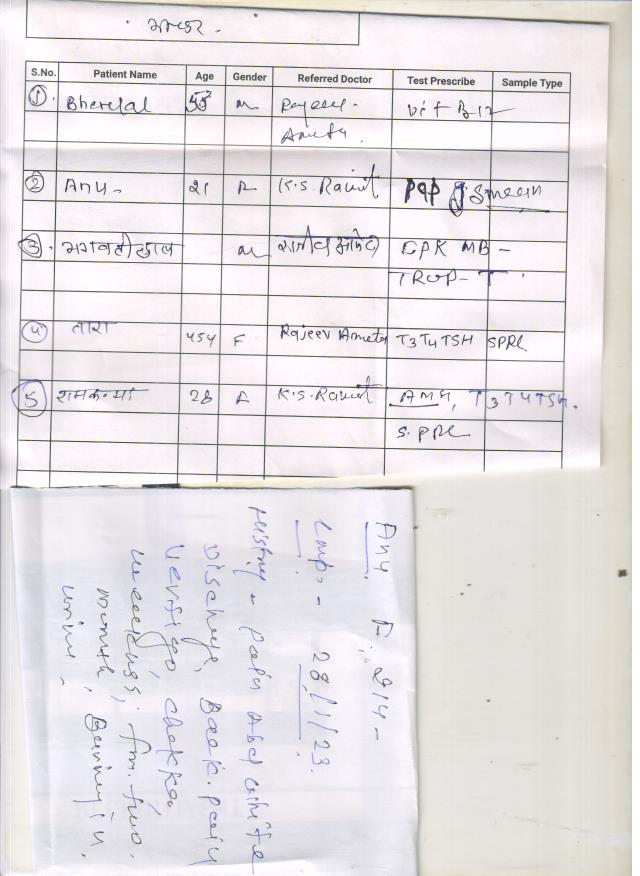 S.No. Patient Name Age Gender Referred Doctor Test Prescribe Sample Type
1 Bherulal M Vit B12
Ameta.
2 Anu - 21 F K.S. Rawit PAP Smear
3 M CPK MB -
TROP-T
4 तारा 45Y F Rajeev Ameta T3T4TSH SPRL
5 28 F K.S. Rawit AMH, T3T4TSH.
S.PRL
Anu F. 21Y -
Lmp. - 28/1/23.
History - pain Abd white
Discharge, Back pain
Vertigo, chakkar
weekness. fm. two.
month, Burning in
urine -